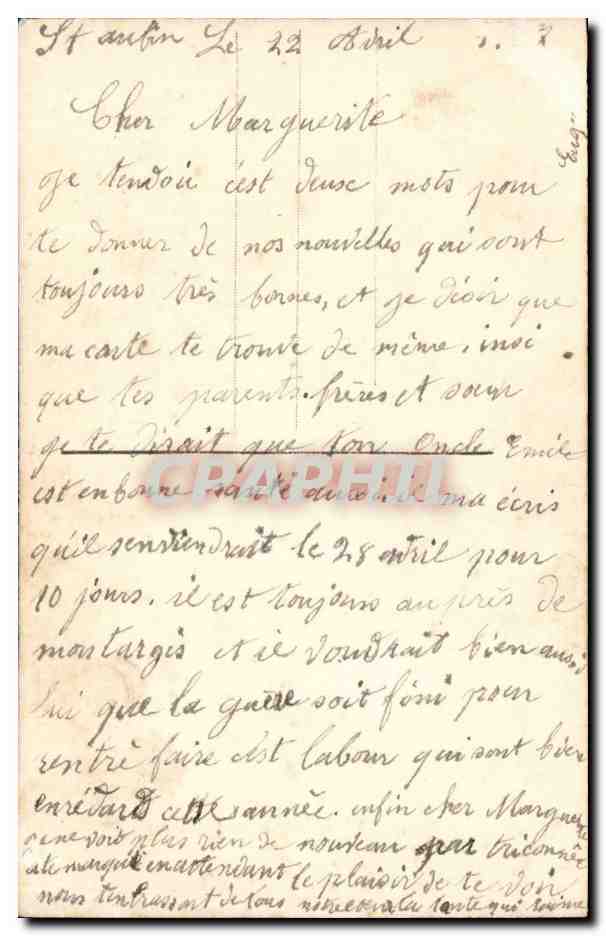 St aubin Le 22 Avril
Cher Marguerite
Je tendoie c'est deuse mots pour
te donner de nos nouvelles qui sont
toujours très bonnes, et je désir que
ma carte te trouve de même. insi
que tes parents. frères et sœur
je te dirait que ton Oncle Emile
est en bonne santé aussi il ma écris
qu'il senviendrait le 28 avril pour
10 jours. il est toujours au près de
montargis et il voudrait bien aussi
lui que la guère soit fini pour
rentré faire c'est labour qui sont bien
enrédard cette année. enfin cher Marguerite
je ne voit plus rien de nouveau par
en attendant le plaisir de te voir
nous tenbrassont de tous notre la tante qui
Eug
CPAPHIL